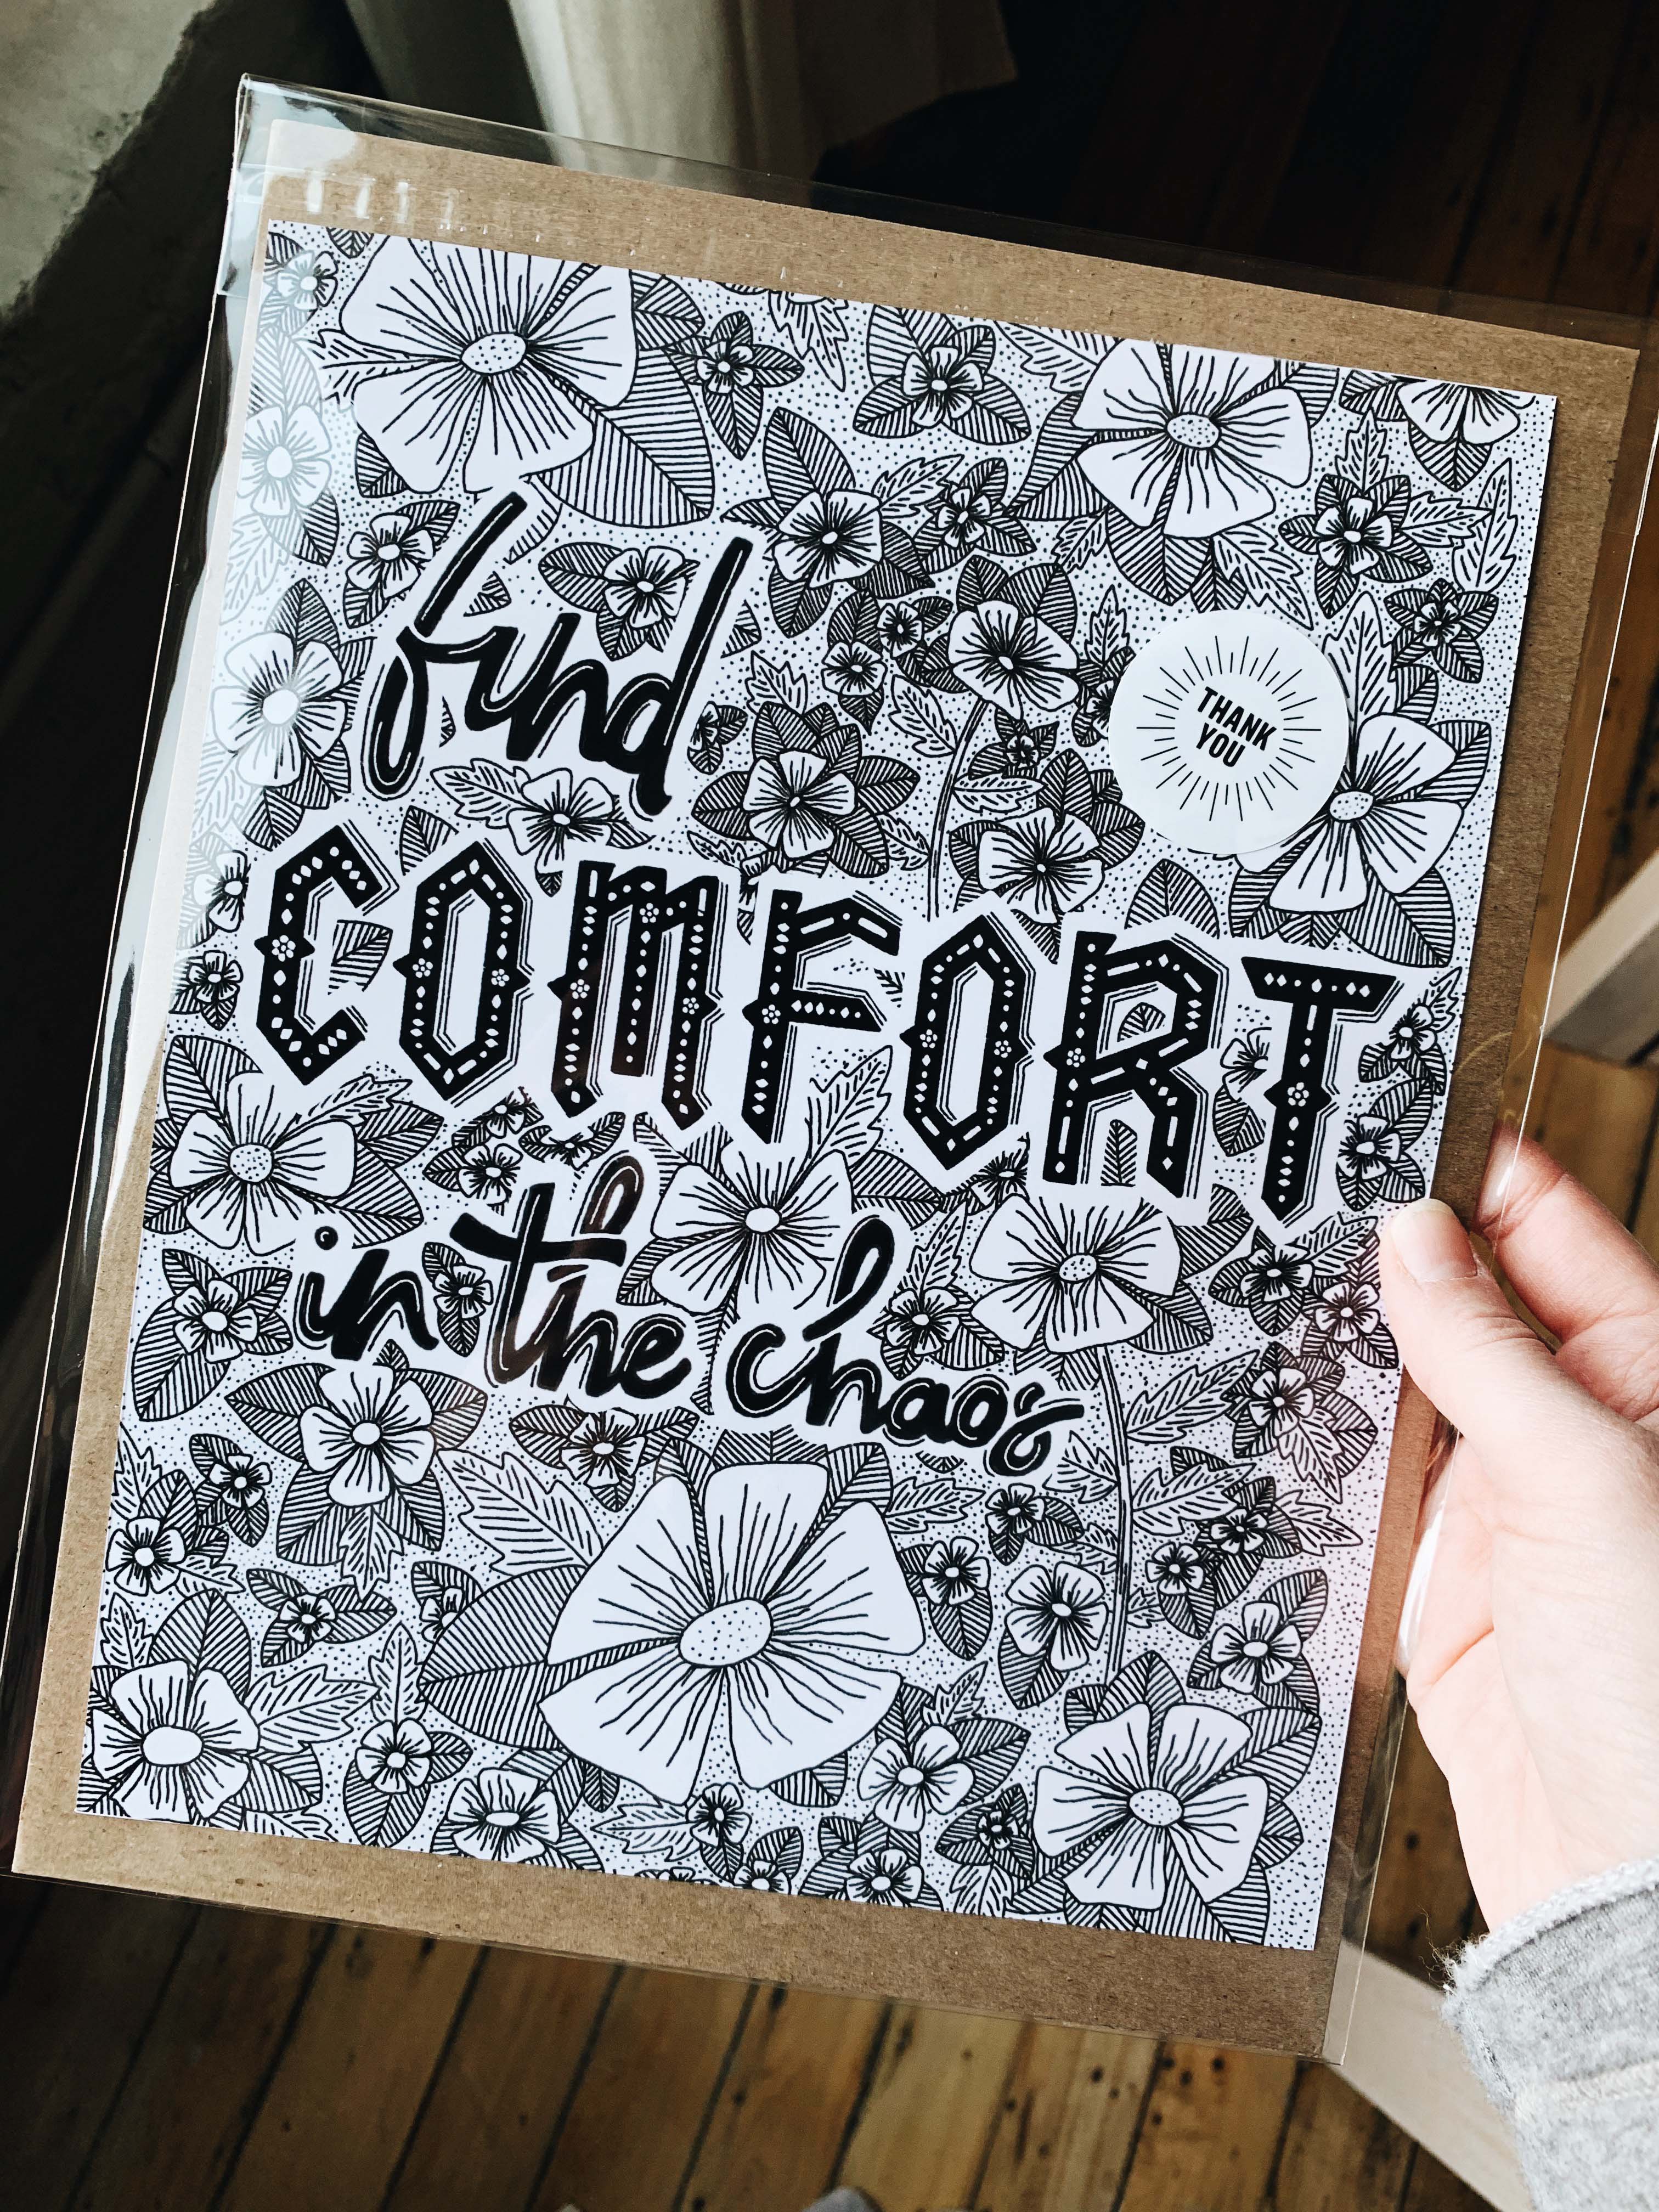 find
THANK
YOU
COMFORT
in the chaos